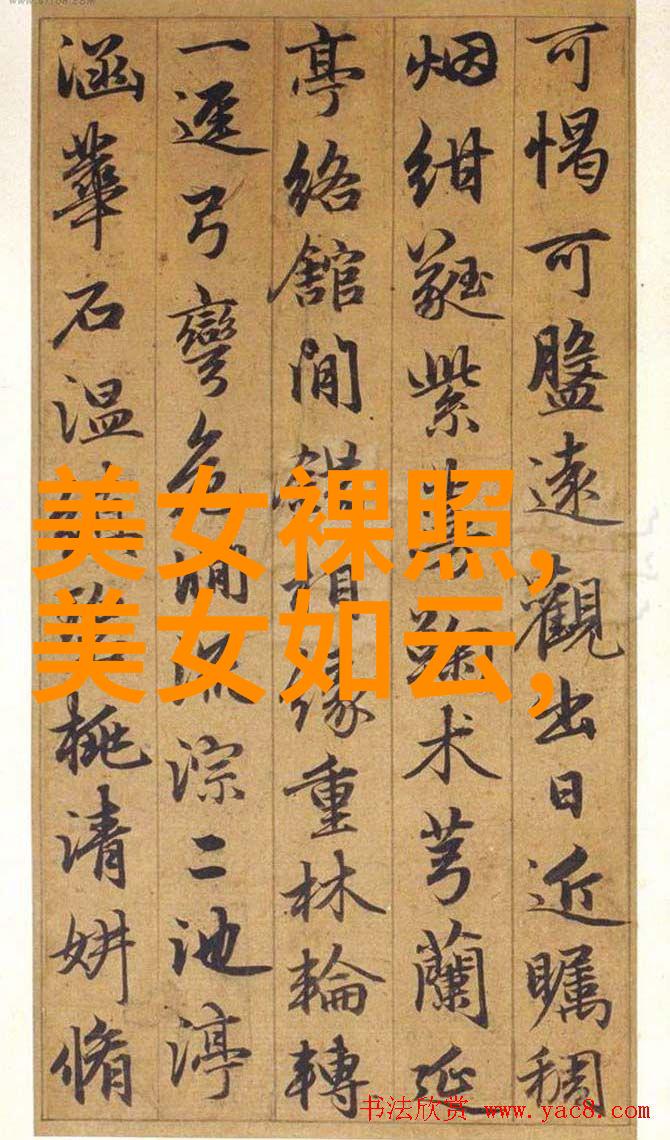 可愒可盤遠觀出日近矚稠
烟紺蕤紫术芎蘭延
亭絡館閒緣重林輪轉
一逕弓彎危淙二池渟
涵華石温桃清妍脩
美女裸照,
美女如云,
书法欣赏 www.yac8.com